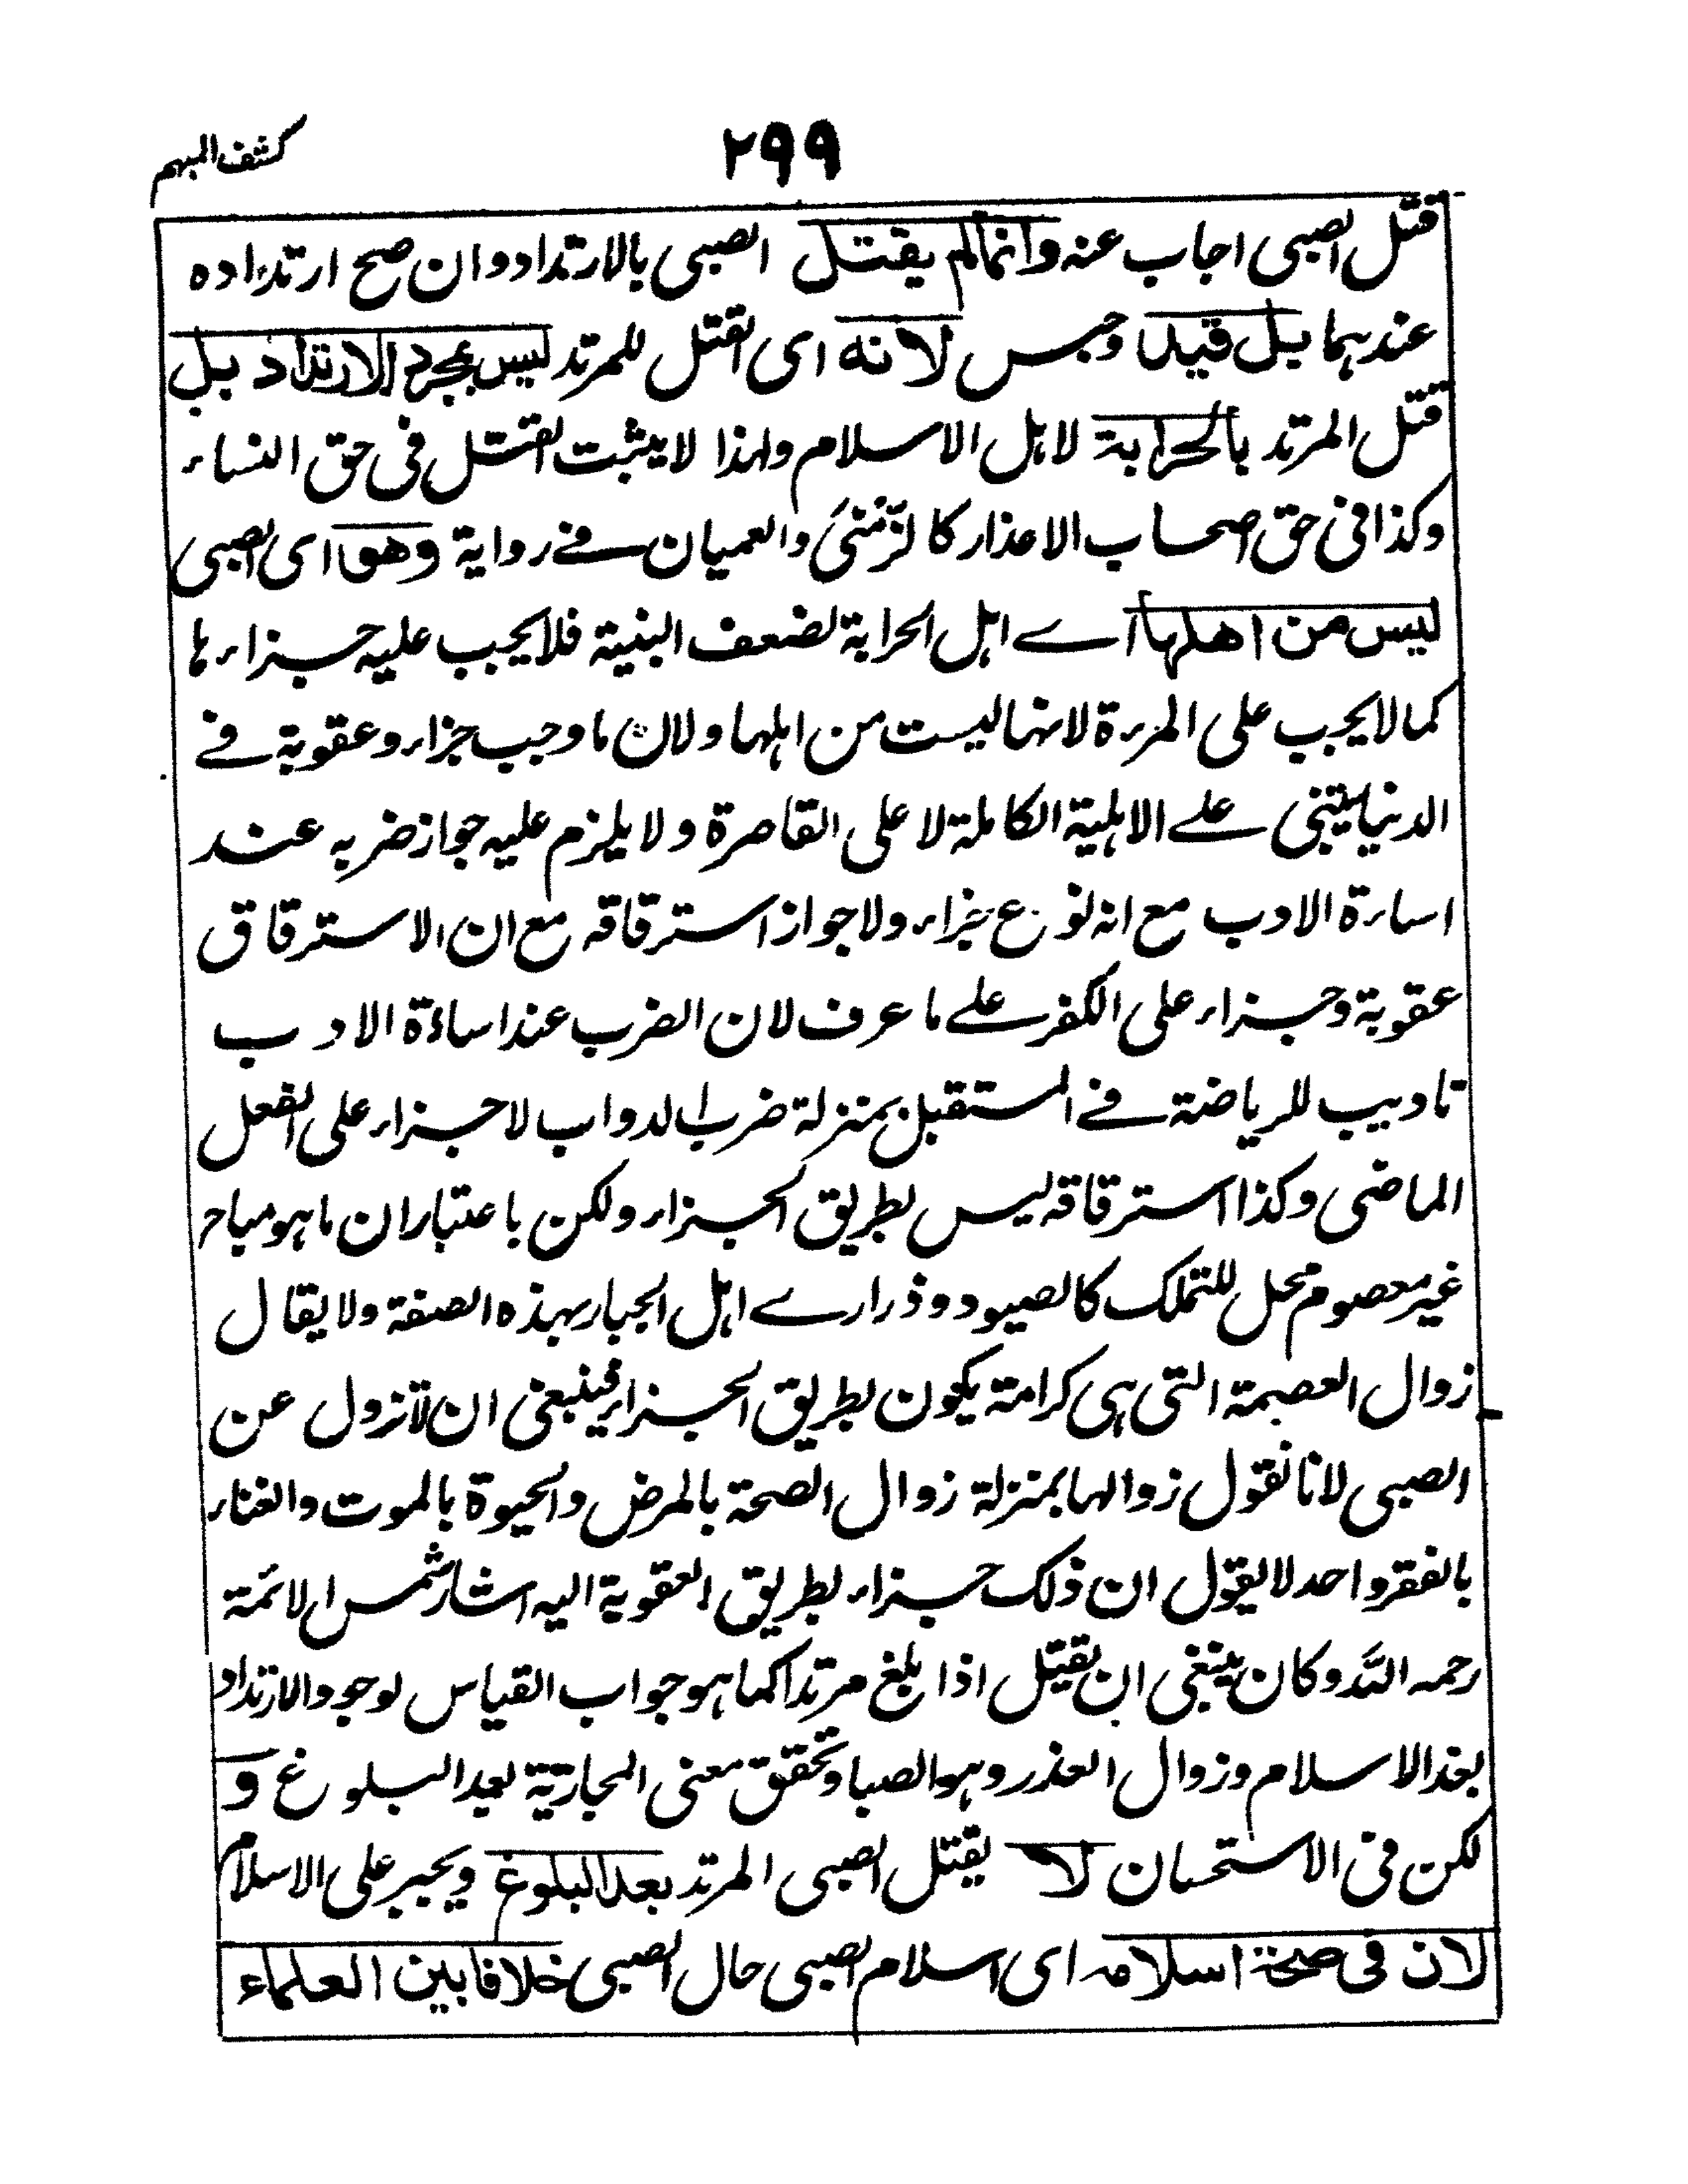 كشف المبهم
٢٩٩
قتل الصبى اجاب عنه وانما لم يقتل الصبى بالارتداد وان صح ارتداده
عندهما بل قيد وحبس لانه اى القتل للمرتد ليس بمجرد الارتداد بل
قتل المرتد بالحرابة لاهل الاسلام ولهذا لا يثبت القتل فى حق النساء
وكذا فى حق اصحاب الاعذار كالزمنى والعميان فے رواية وهو اى الصبى
ليس من اهلها اے اهل الحرابة لضعف البنية فلا يجب عليه جزاءها
كما لا يجب على المرءة لانها ليست من اهلها ولان ما وجب جزاء وعقوبة فے
الدنيا يبتنى علے الاهلية الكاملة لا على القاصرة ولا يلزم عليه جواز ضربه عند
اساءة الادب مع انه نوع جزاء ولا جواز استرقاقه مع ان الاسترقاق
عقوبة وجزاء على الكفر علے ما عرف لان الضرب عند اساءة الادب
تاديب للرياضة فے المستقبل بمنزلة ضرب الدواب لا جزاء على الفعل
الماضى وكذا استرقاقه ليس بطريق الجزاء ولكن باعتبار ان ما هو مباح
غير معصوم محل للتملك كالصيود وذرارے اهل الحبار بهذه الصفة ولا يقال
زوال العصمة التى هى كرامة يكون بطريق الجزاء فينبغى ان لا تزول عن
الصبى لانا نقول زوالها بمنزلة زوال الصحة بالمرض والحيوة بالموت والغناء
بالفقر واحد لا يقول ان ذلك جزاء بطريق العقوبة اليه اشار شمس الائمة
رحمه الله وكان ينبغى ان يقتل اذا بلغ مرتدا كما هو جواب القياس لوجود الارتداد
بعد الاسلام وزوال العذر وهو الصبا وتحقق معنى المحاربة بعد البلوغ و
لكن فى الاستحسان لا يقتل الصبى المرتد بعد البلوغ ويجبر على الاسلام
لان فى صحة اسلامه اى اسلام الصبى حال الصبى خلافا بين العلماء